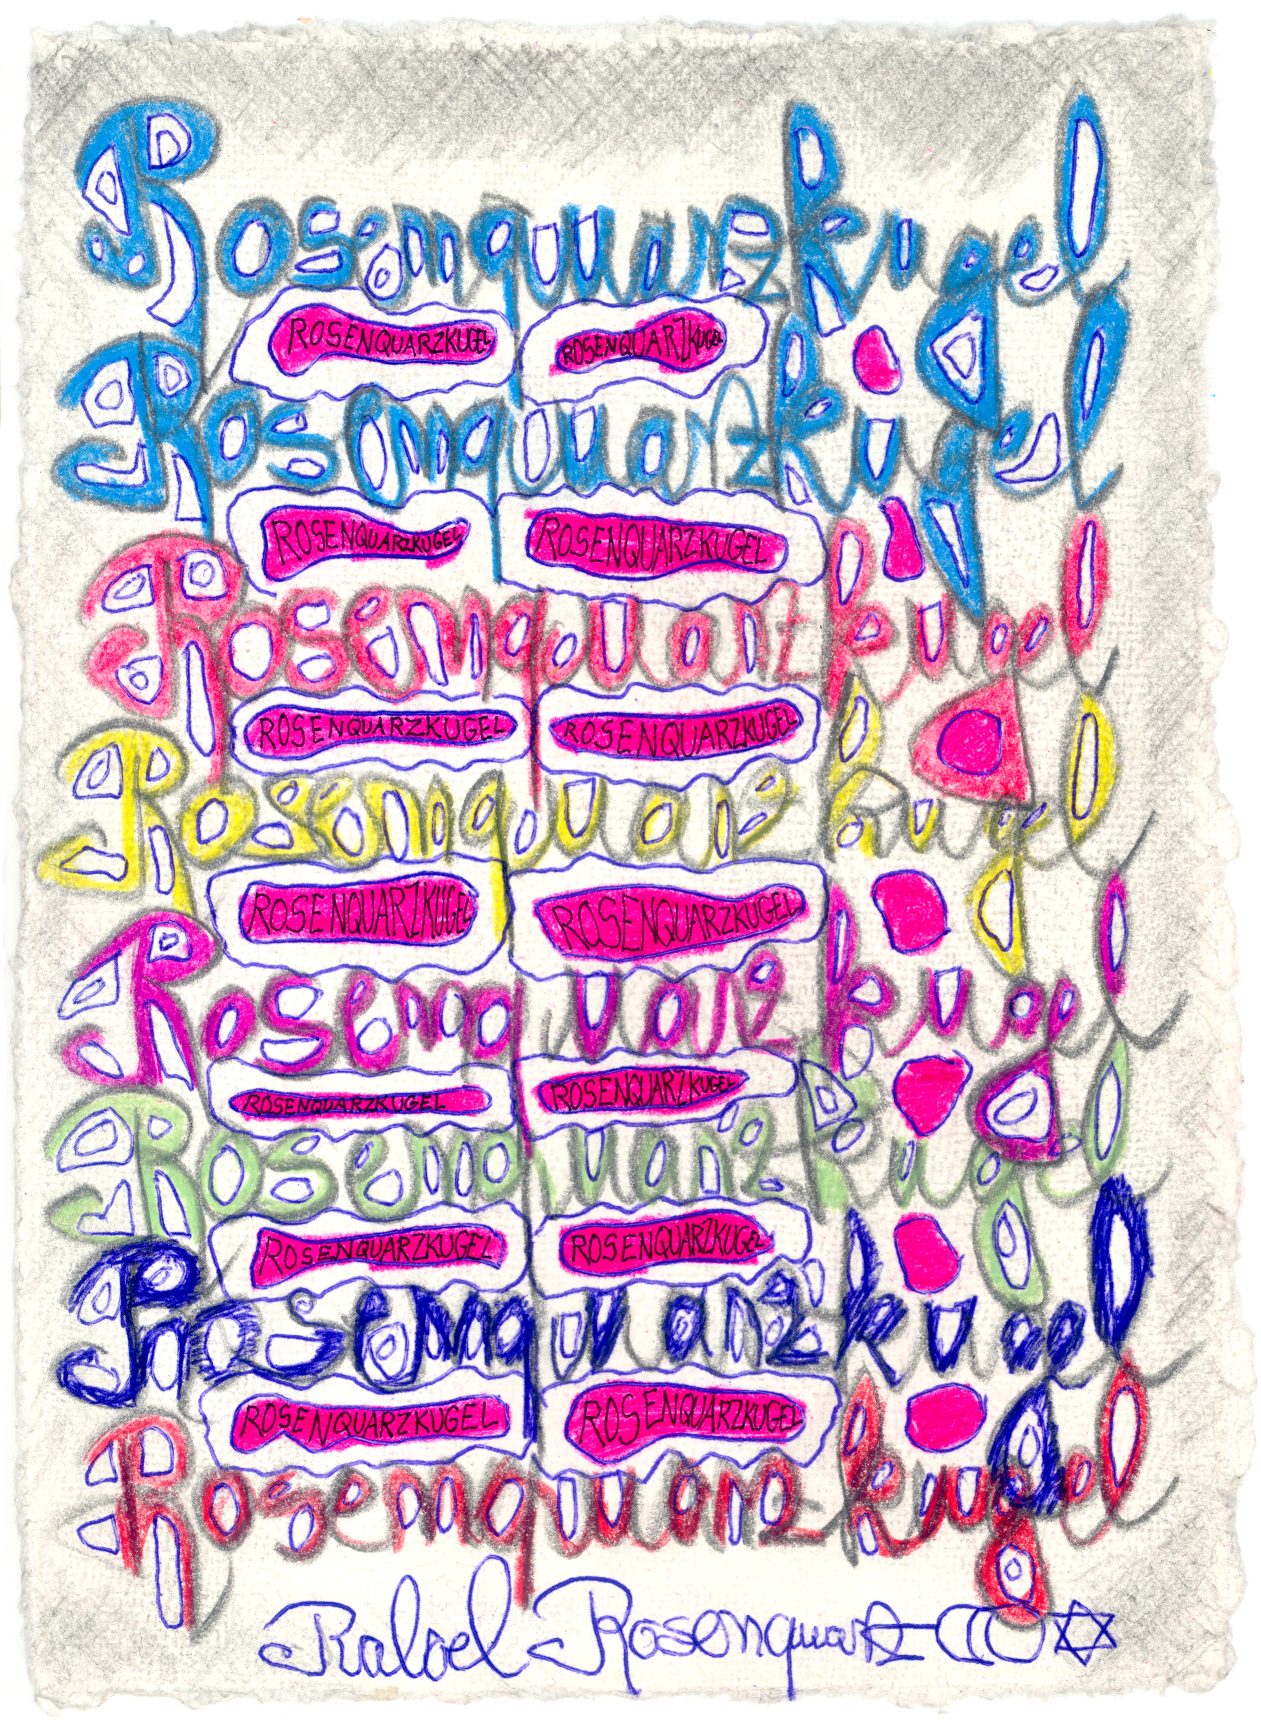 Rosenquarzkugel
ROSENQUARZKUGEL ROSENQUARZKUGEL
Rosenquarzkugel
ROSENQUARZKUGEL ROSENQUARZKUGEL
Rosenquarzkugel
ROSENQUARZKUGEL ROSENQUARZKUGEL
Rosenquarzkugel
ROSENQUARZKUGEL ROSENQUARZKUGEL
Rosenquarzkugel
ROSENQUARZKUGEL ROSENQUARZKUGEL
Rosenquarzkugel
ROSENQUARZKUGEL ROSENQUARZKUGEL
Rosenquarzkugel
ROSENQUARZKUGEL ROSENQUARZKUGEL
Rosenquarzkugel
Rafael Rosenquarz